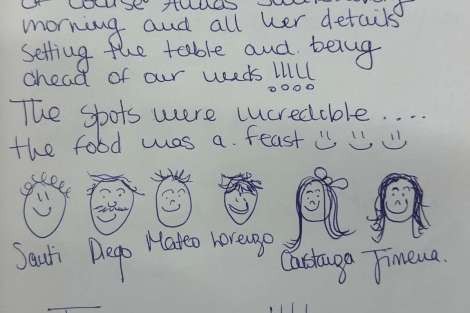 morning and all her details
Setting the table and being
ahead of our needs !!!!!
The spots were incredible ....
the food was a feast
Santi Diego Mateo Lorenzo Constanza Jimena.